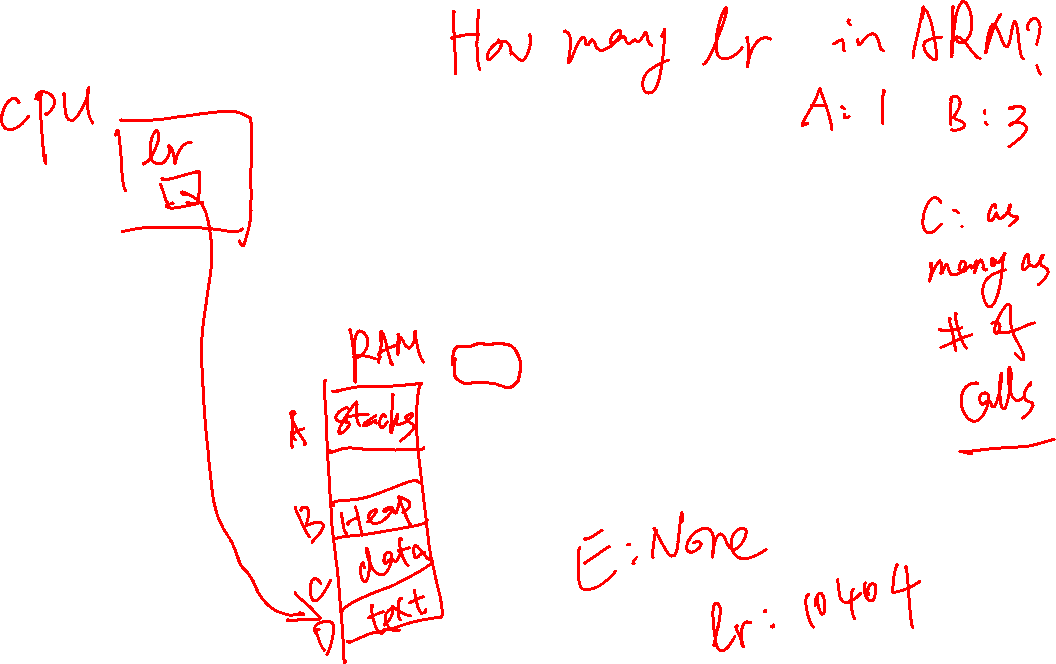 How many lr in ARM?
A: 1 B: 3
CPU
lr
C: as
many as
# of
calls
RAM
A stacks
B Heap
C data
D text
E: None
lr: 10404